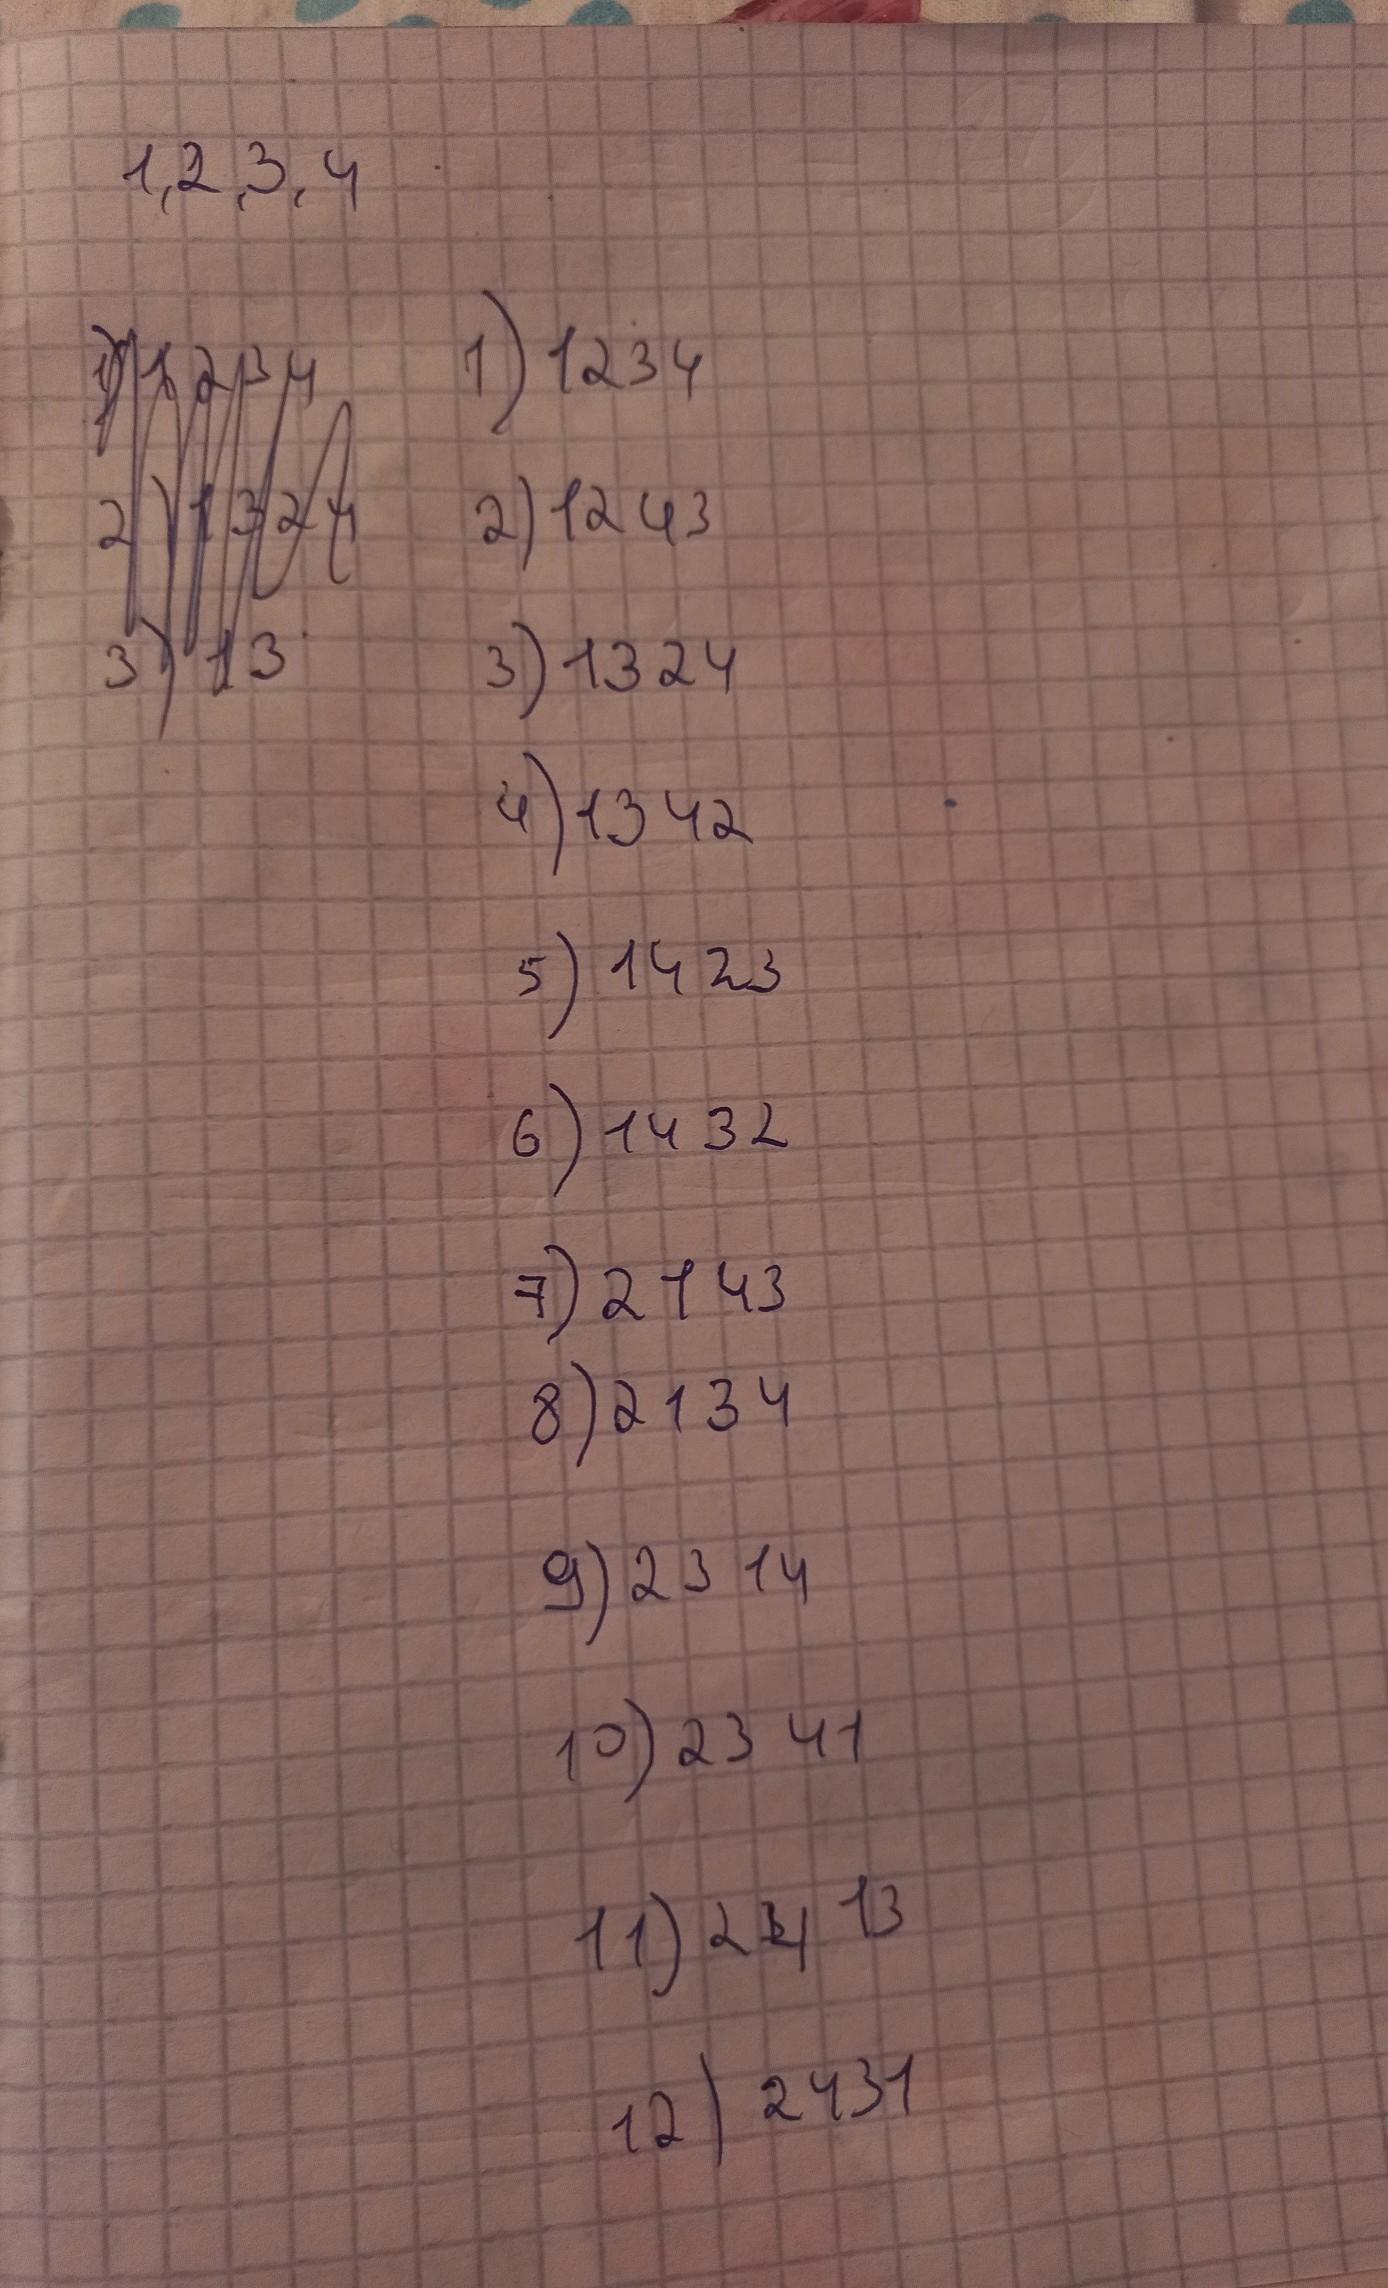 1,2,3,4
1) 1234
2) 1324
3) 13
1) 1234
2) 1243
3) 1324
4) 1342
5) 1423
6) 1432
7) 2143
8) 2134
9) 2314
10) 2341
11) 2413
12) 2431